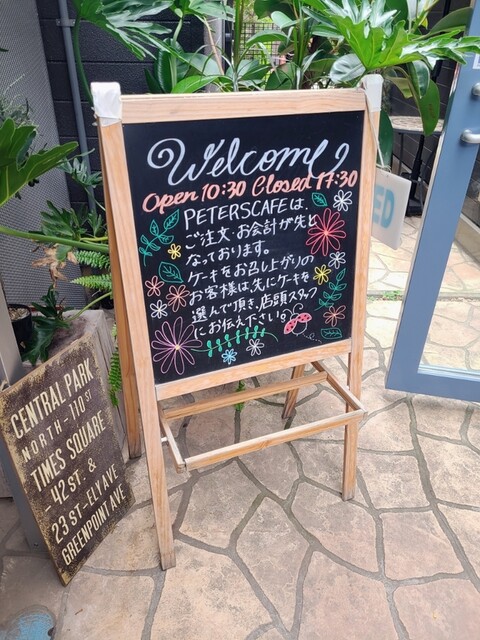 Welcome
Open 10:30 Closed 17:30
PETERSCAFEは、
ご注文・お会計が先と
なっております。
ケーキをお召し上がりの
お客様は、先にケーキを
選んで頂き、店頭スタッフ
にお伝えください。
CENTRAL PARK
NORTH-110 ST
TIMES SQUARE
-42ST. &
23 ST-ELY AVE
GREENPOINT AVE